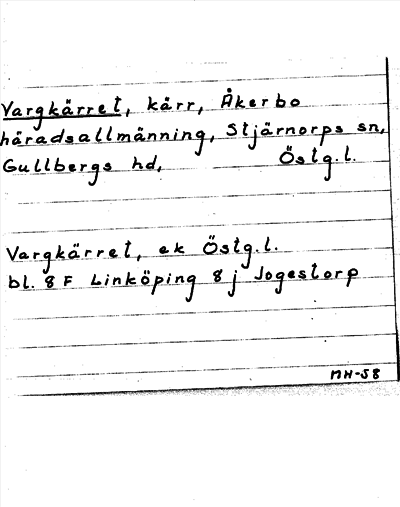 Vargkärret, kärr, Åkerbo
häradsallmänning, Stjärnorps sn,
Gullbergs hd, Östg.l.
Vargkärret, ek Östg.l.
bl. 8 F Linköping 8 j Jogestorp
MH-58